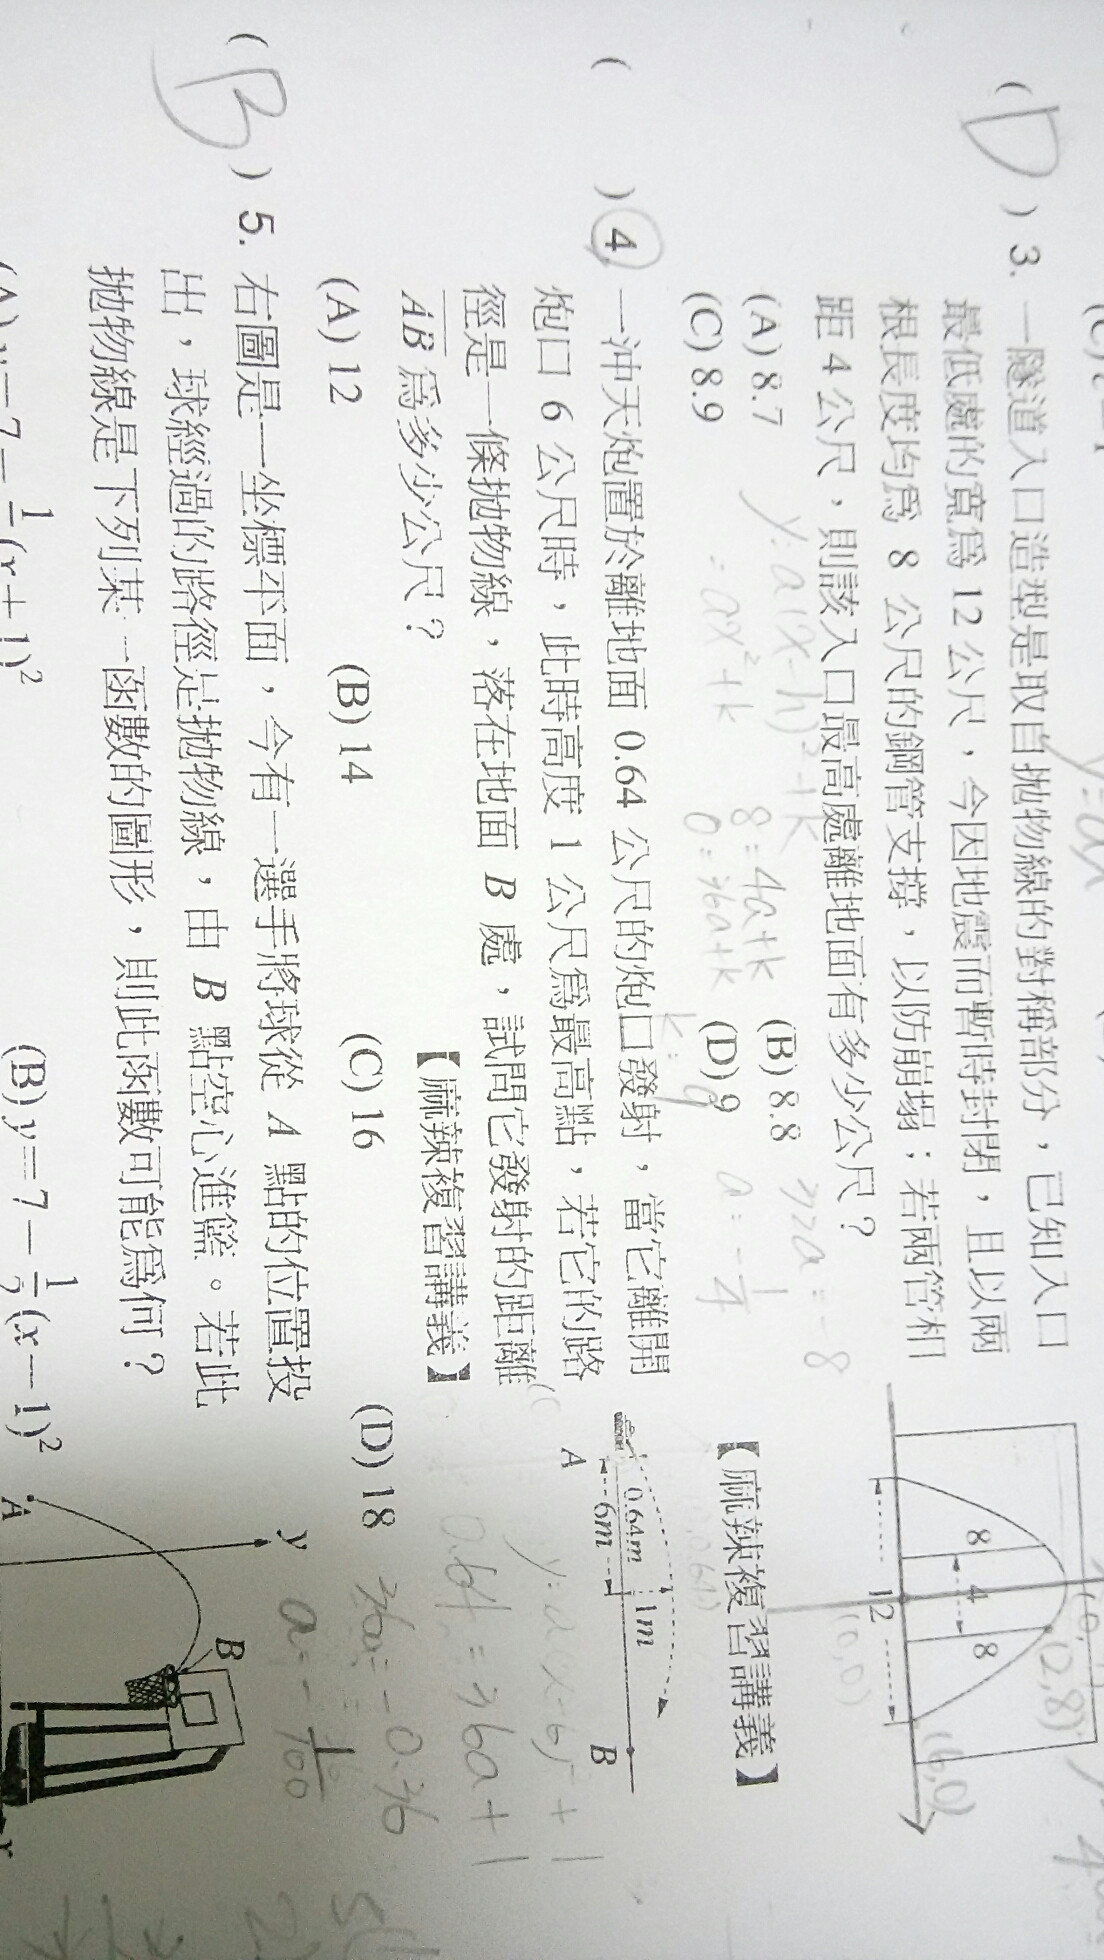 ( D ) 3. 一隧道入口造型是取自拋物線的對稱部分，已知入口
最低處的寬為 12 公尺，今因地震而暫時封閉，且以兩
根長度均為 8 公尺的鋼管支撐，以防崩塌；若兩管相
距 4 公尺，則該入口最高處離地面有多少公尺？
(A) 8.7 (B) 8.8
(C) 8.9 (D) 9
【麻辣複習講義】
y=a(x-h)²+k
=ax²+k
8=4a+k
0=36a+k
32a=-8
a=-1/4
k=9
8
4
8
12
(2,8)
(6,0)
(0,0)
( ) 4. 一沖天炮置於離地面 0.64 公尺的炮口發射，當它離開
炮口 6 公尺時，此時高度 1 公尺為最高點，若它的路
徑是一條拋物線，落在地面 B 處，試問它發射的距離
AB 為多少公尺？
【麻辣複習講義】
(A) 12 (B) 14 (C) 16 (D) 18
0.64m
1m
6m
A
B
0.64=36a+1
36a=-0.36
a=-1/100
( B ) 5. 右圖是一坐標平面，今有一選手將球從 A 點的位置投
出，球經過的路徑是拋物線，由 B 點空心進籃。若此
拋物線是下列某一函數的圖形，則此函數可能為何？
y
A
B
(B) y=7-1/2(x-1)²